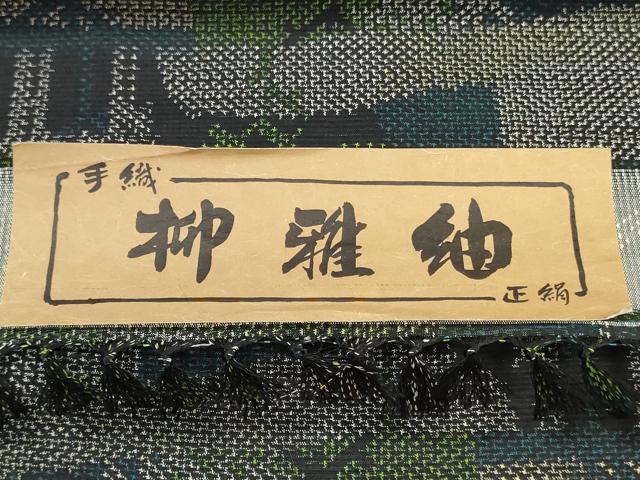 手織
柳雅紬
正絹